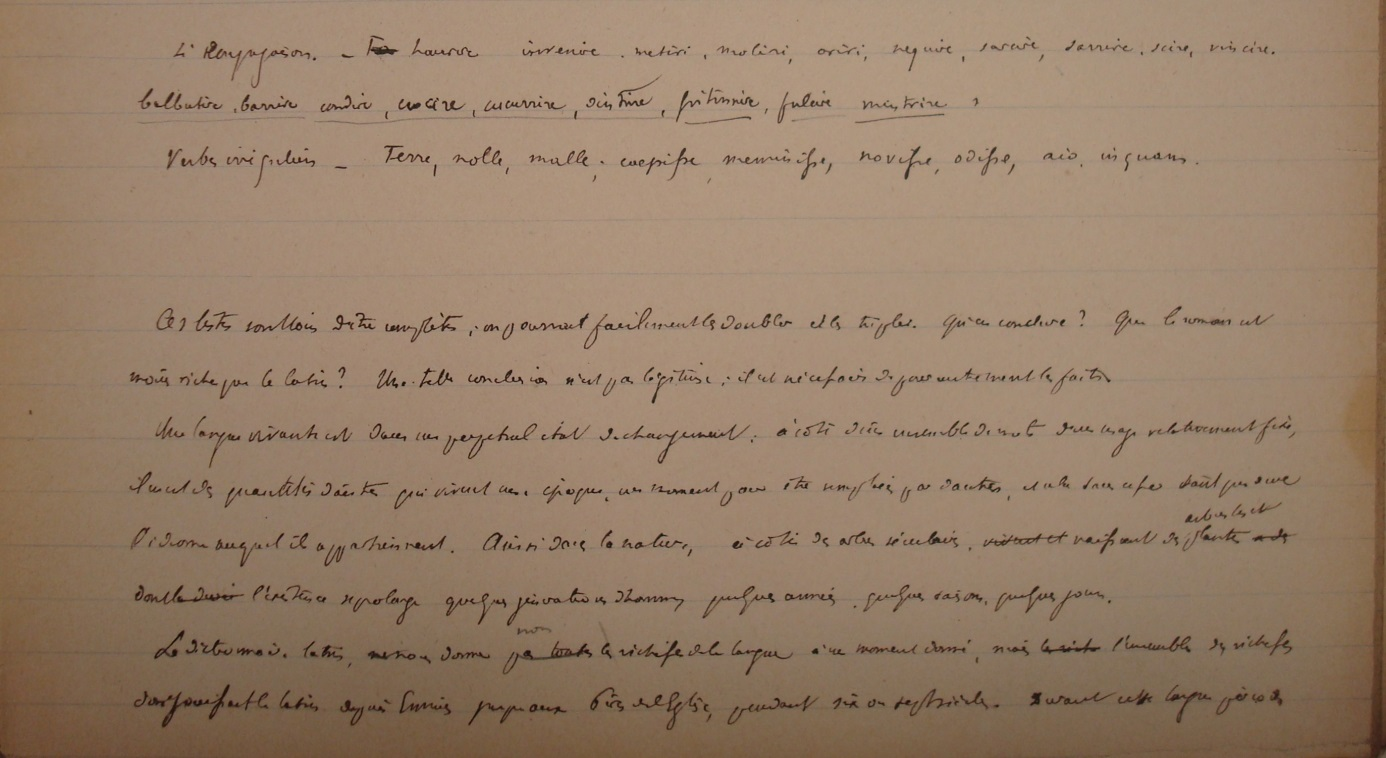 4e Conjugaison. — haurire invenire. metiri, moliri, oriri, nequire, sarcire, sarrire, scire, vincire.
balbutire, barrire condire, crocire, cucurrire, fritinnire, fulcire
Verbes irréguliers — Ferre, nolle, malle; coepisse, meminisse, novisse, odisse, aio, inquam.
Ces listes sont loin d'être complètes; on pourrait facilement les doubler et les tripler. Qu'en conclure? Que le roman est
moins riche que le latin? Une telle conclusion n'est pas légitime; il est nécessaire de voir autrement les faits.
Une langue vivante est dans un perpetuel état de changement; à côté d'un ensemble de mots d'un usage relativement fixe,
il en est des quantités d'autres qui vivent une époque, un moment pour être remplacés par d'autres, et cela sans cesse tant que dure
l'idiome auquel ils appartiennent. Ainsi dans la nature, à côté des arbres séculaires, vivent et naissent des arbustes et plantes
dont la l'existence se prolonge quelques générations d'hommes, quelques années, quelques saisons, quelques jours.
Le dictionnaire latin, donne non pas toutes les richesses de la langue à un moment donné, mais l'ensemble des richesses
dont jouissait le latin depuis Ennius jusqu'aux Pères de l'Eglise, pendant six ou sept siècles. Durant cette longue période